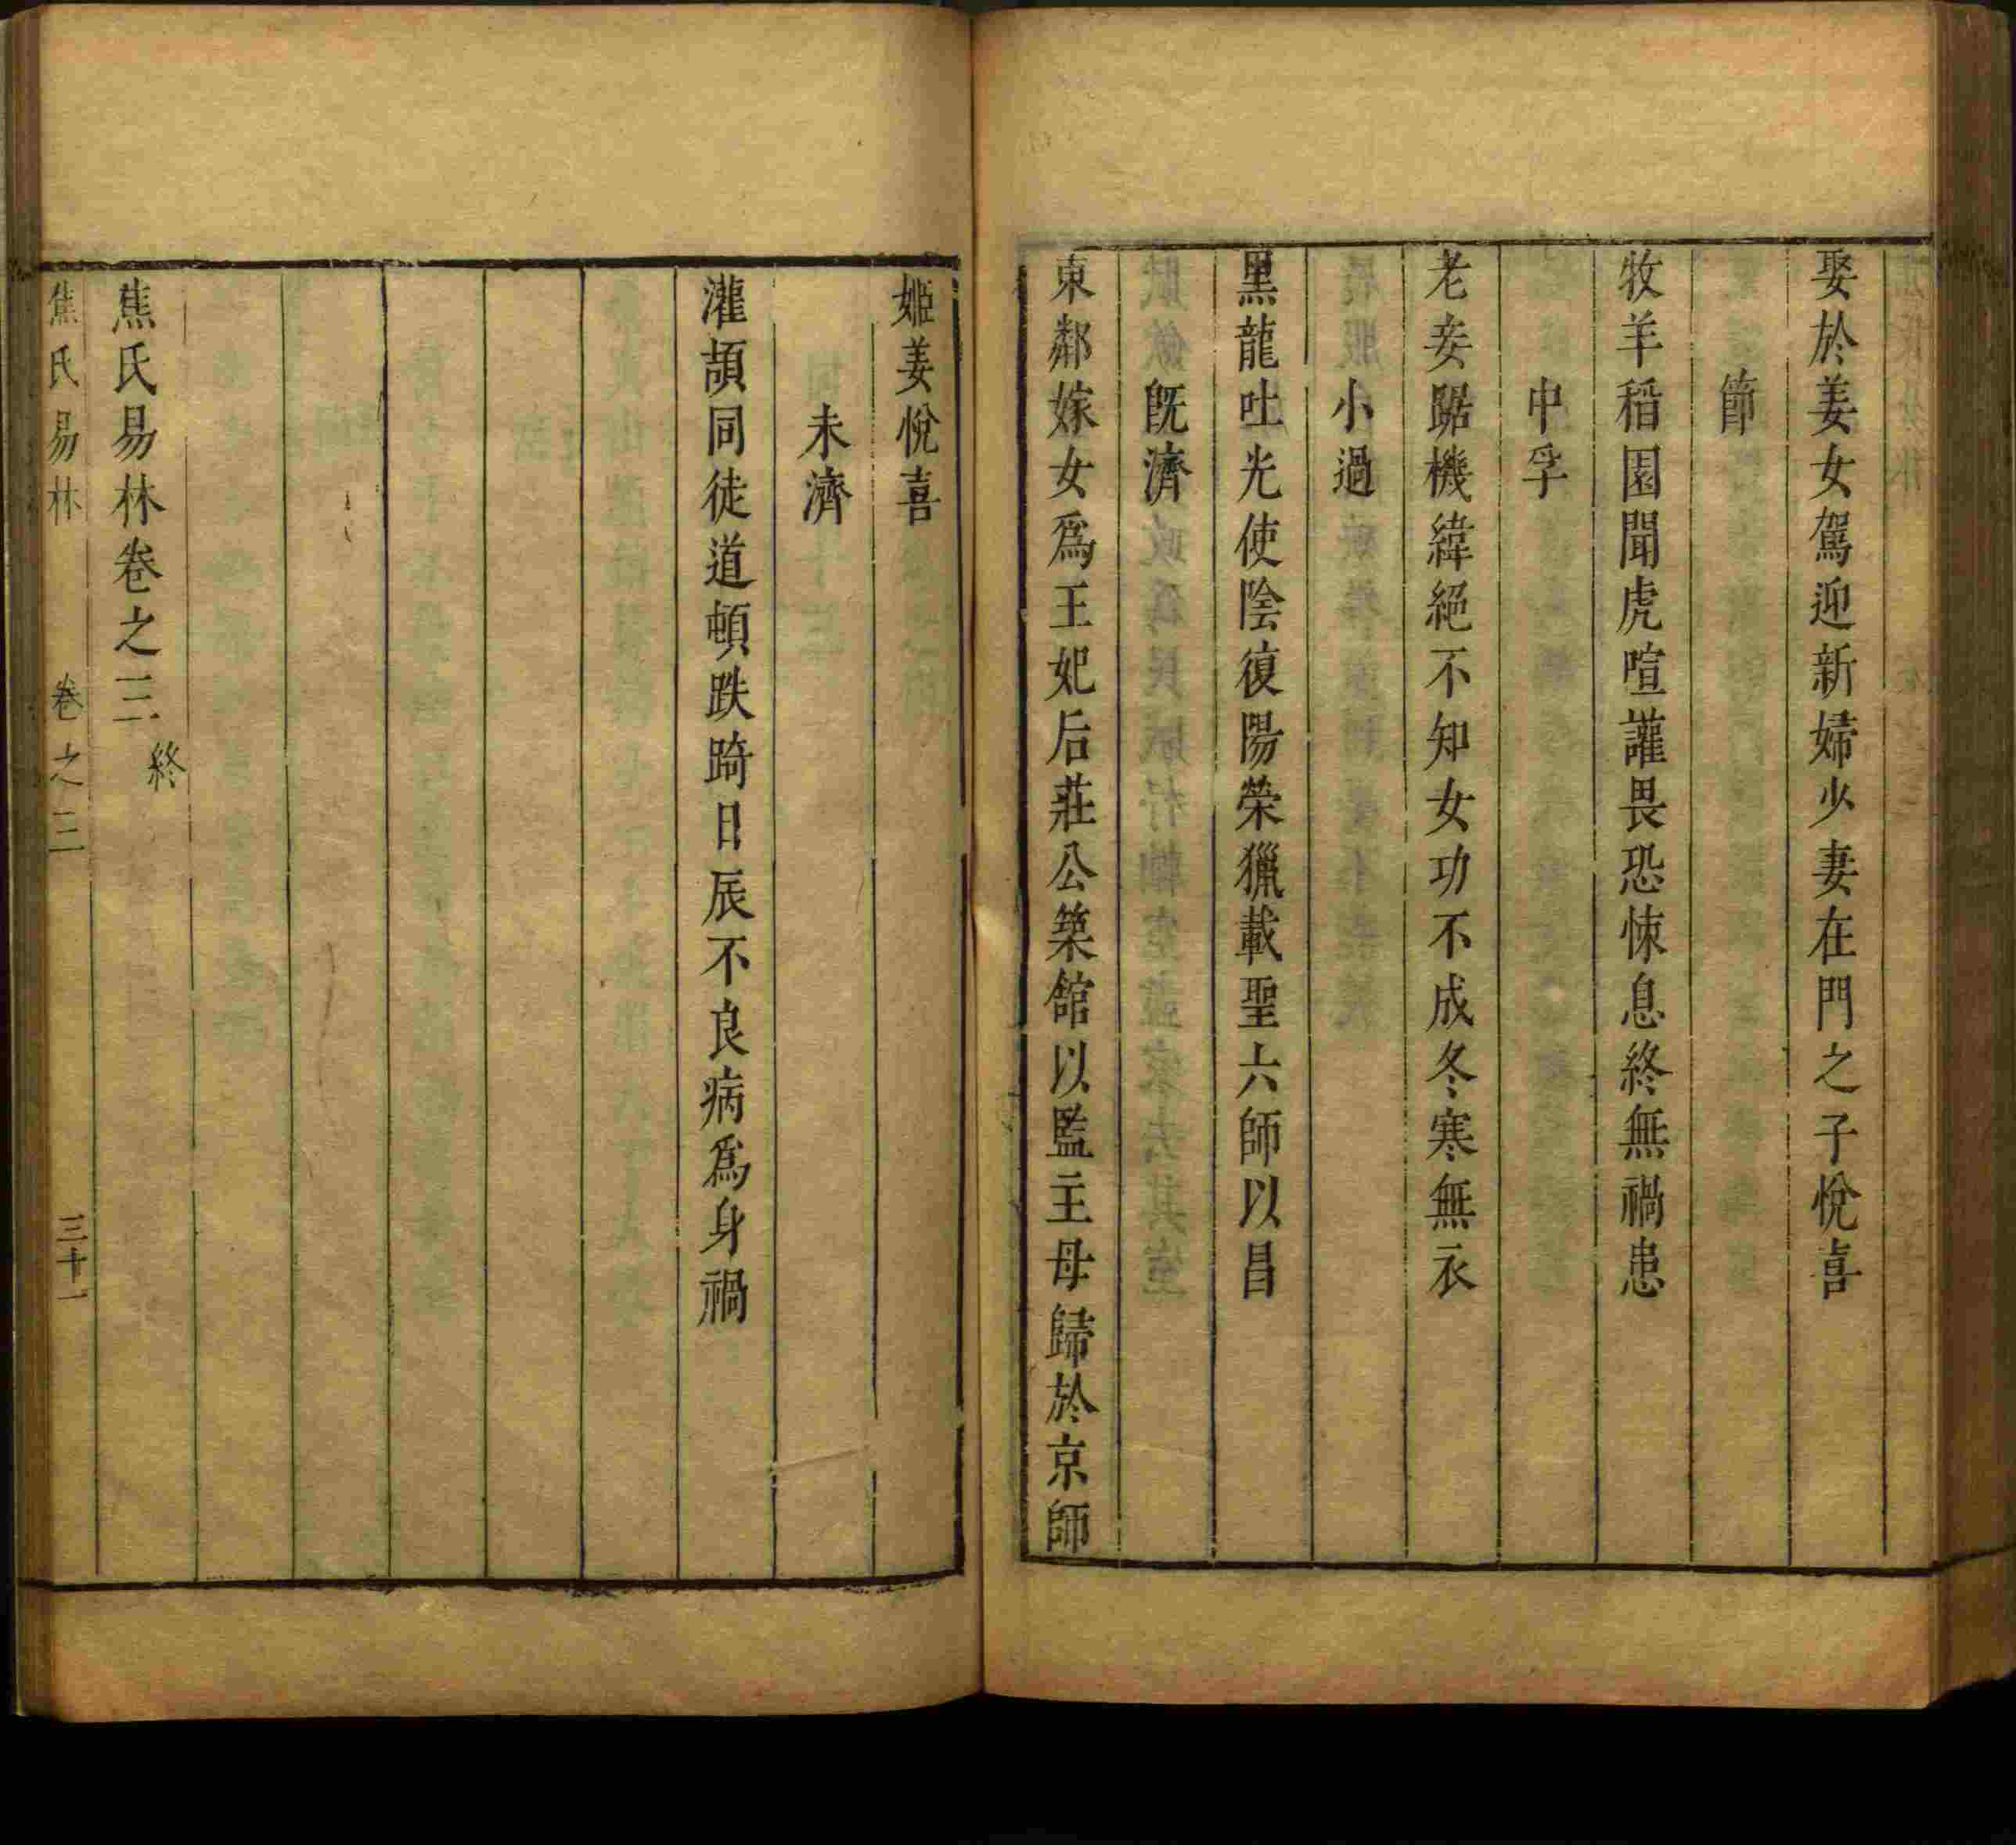 娶於姜女駕迎新婦少妻在門之子悅喜
節
牧羊稻園聞虎喧讙畏恐悚息終無禍患
中孚
老妾踞機緯絕不知女功不成冬寒無衣
小過
黑龍吐光使陰復陽榮獵載聖六師以昌
旣濟
東鄰嫁女爲王妃后莊公築館以監主母歸於京師
姬姜悅喜
未濟
灌頡同徒道頓跌踦日辰不良病爲身禍
焦氏易林卷之三 終
焦氏易林 卷之三 三十一